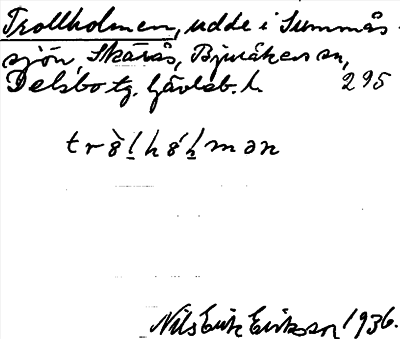 Trollholmen, udde i Summås-
sjön, Skårås, Bjuråkers sn,
Delsbo tg. Gävleb. l. 295
Nils Erik Erikson 1936.